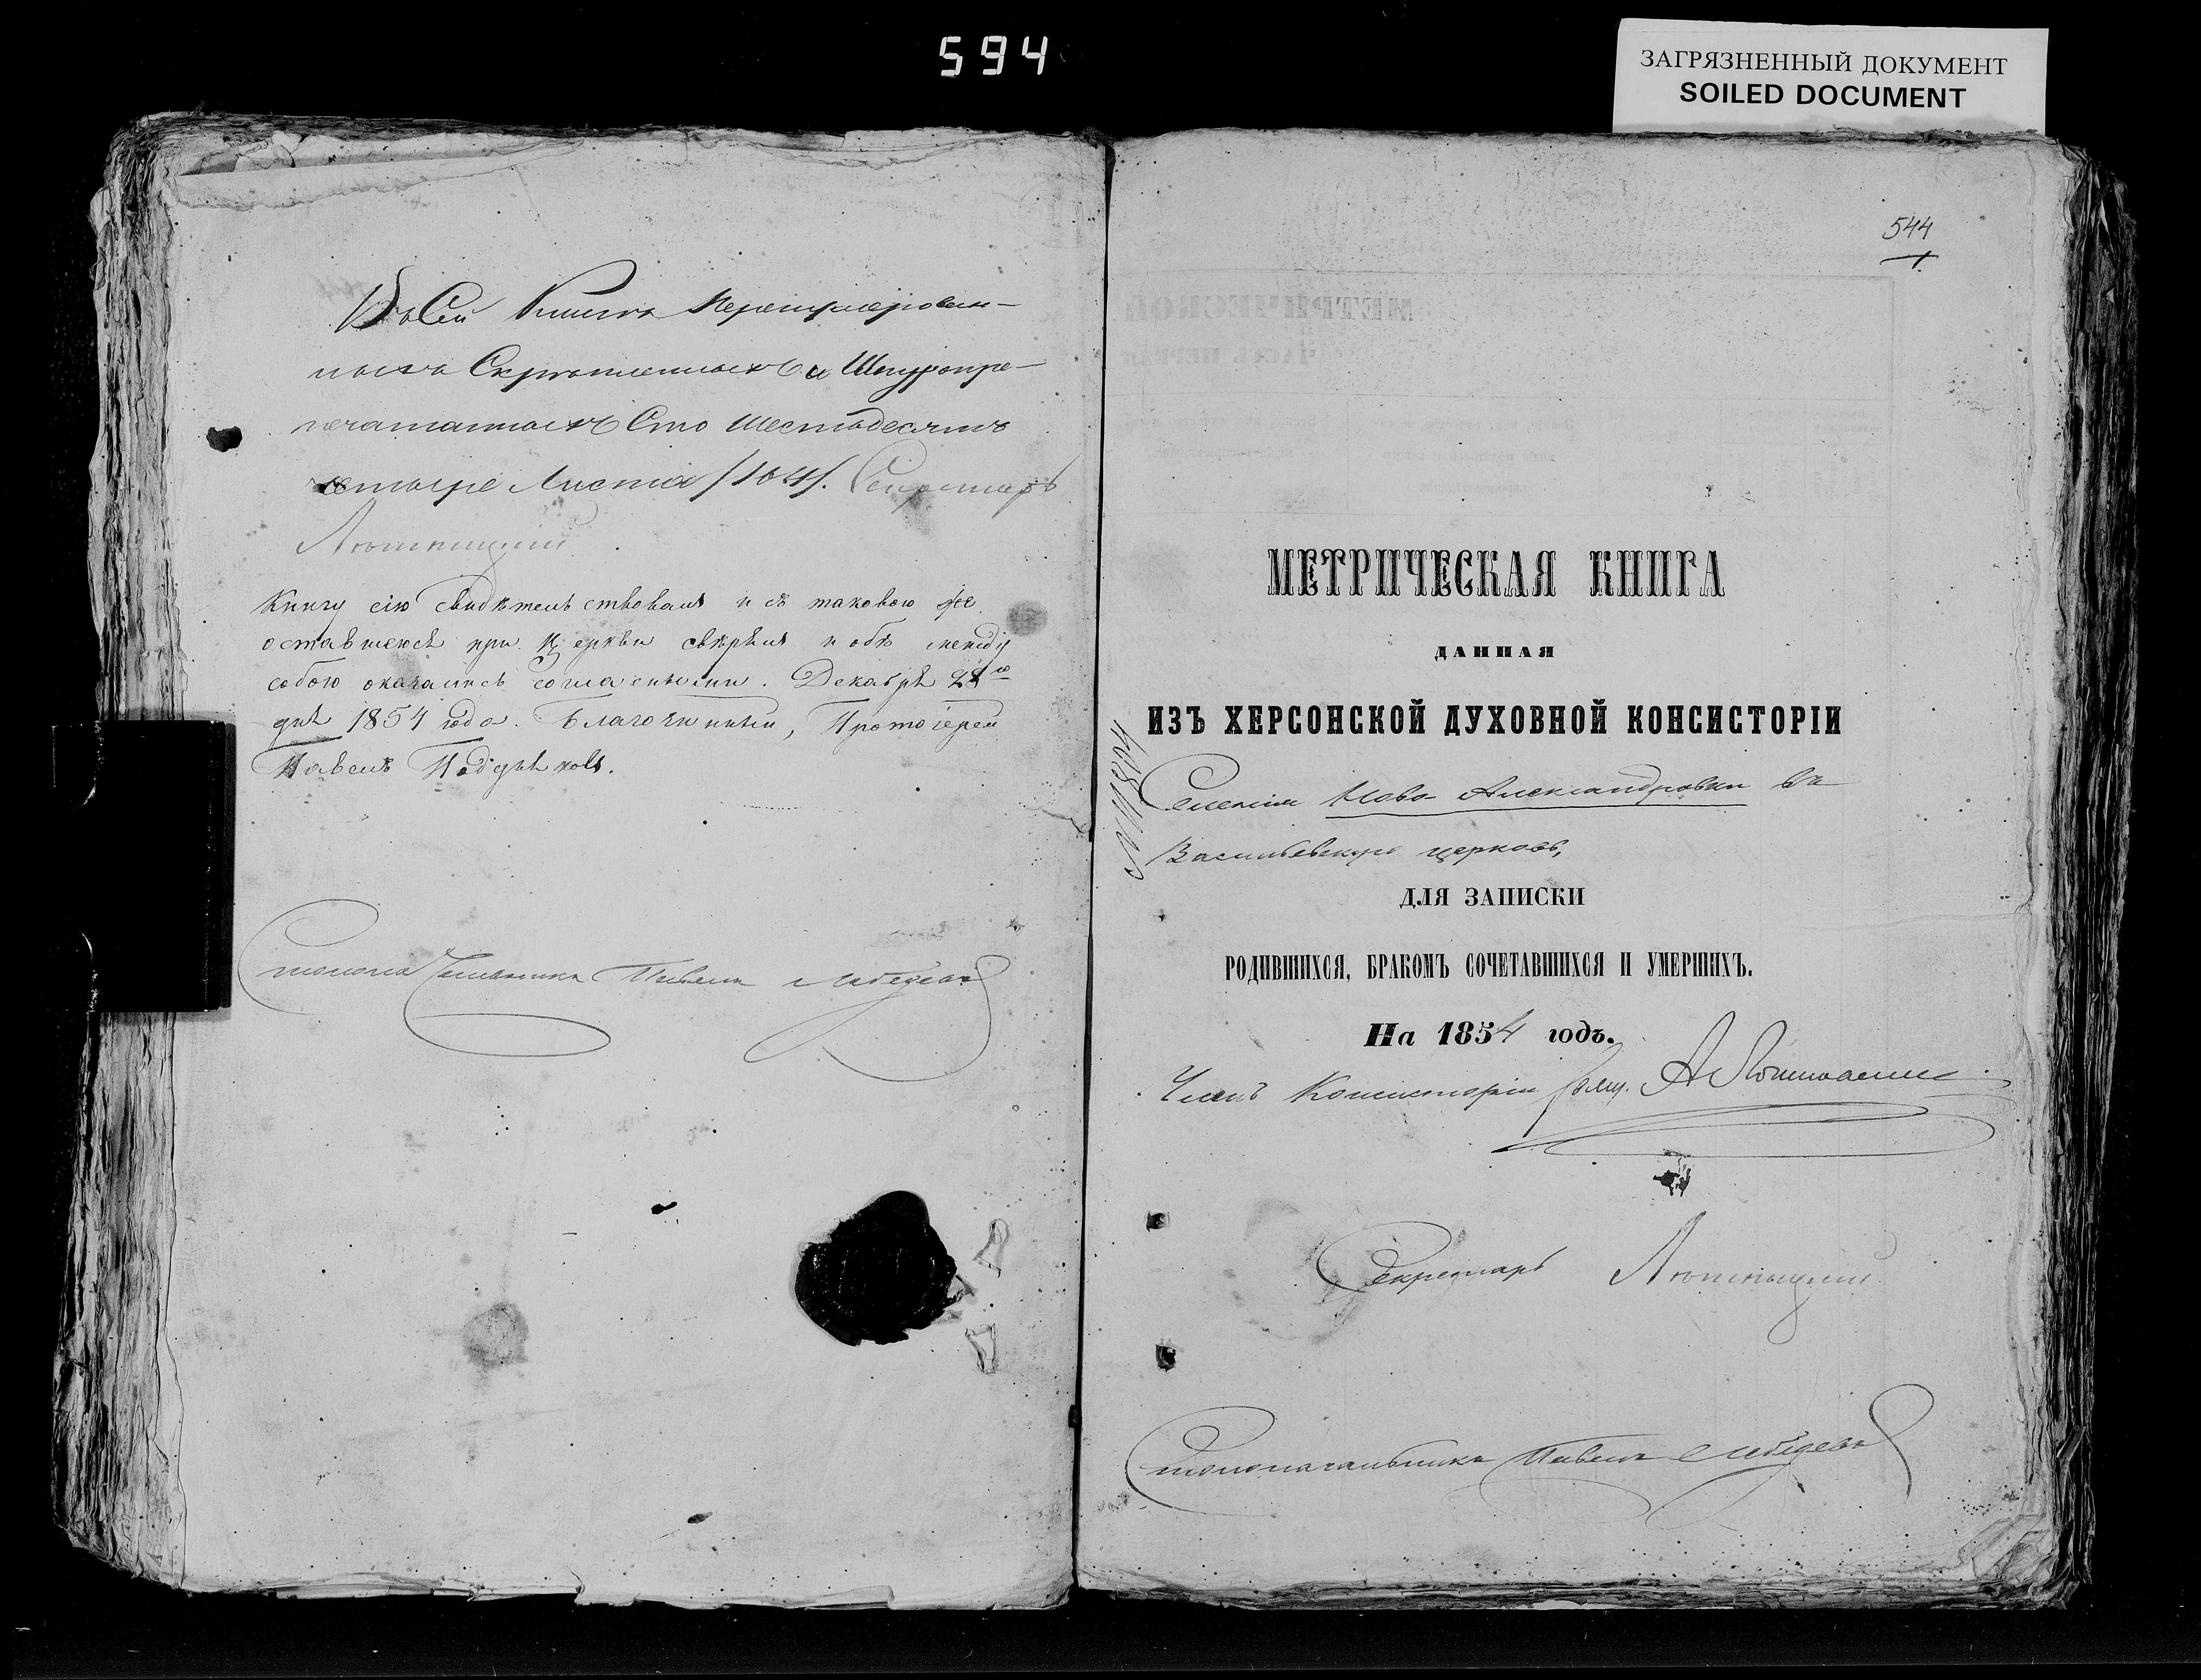 594
ЗАГРЯЗНЕННЫЙ ДОКУМЕНТ
SOILED DOCUMENT
Въ Сей Книгѣ Перенумерован-
ныхъ Скрѣпленныхъ и Шнуропре-
печатанныхъ Сто шестьдесятъ
четыре Листа /164/. Секретарь
Книгу сію свидѣтельствовалъ и съ таковою же
оставшеюся при церкви свѣрялъ и обѣ между
собою оказались согласными. Декабря 28го
дня 1854 года. Благочинный, Протоіерей
Павелъ
Столоначальника Павелъ Лебедевъ
544
1.
МЕТРИЧЕСКАЯ КНИГА
ДАННАЯ
ИЗЪ ХЕРСОНСКОЙ ДУХОВНОЙ КОНСИСТОРІИ
Селенія Ново-Александровки въ
Васильевскую церковь,
ДЛЯ ЗАПИСКИ
РОДИВШИХСЯ, БРАКОМЪ СОЧЕТАВШИХСЯ И УМЕРШИХЪ.
На 1854 годъ.
Членъ Консисторіи
Секретарь
Столоначальника Павелъ Лебедевъ